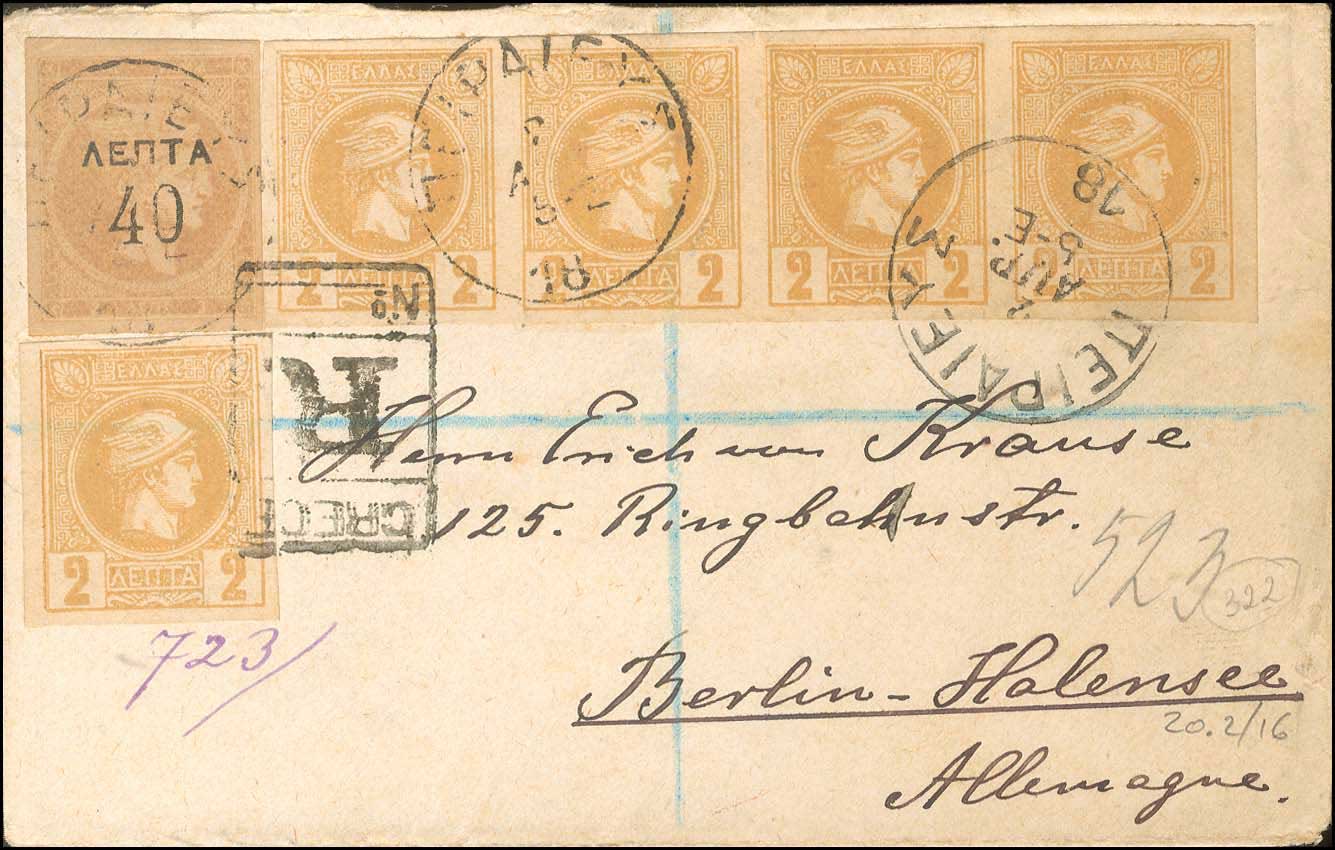 ΛΕΠΤΑ
40
ΕΛΛΑΣ
2 ΛΕΠΤΑ 2
ΕΛΛΑΣ
2 ΛΕΠΤΑ 2
ΕΛΛΑΣ
2 ΛΕΠΤΑ 2
ΕΛΛΑΣ
2 ΛΕΠΤΑ 2
ΠΕΙΡΑΙΕΥΣ
ΠΕΙΡΑΙΕΥΣ
ΠΕΙΡΑΙΕΥΣ
ΑΠΡ.
5-Ε.
18
ΕΛΛΑΣ
2 ΛΕΠΤΑ 2
No
R
GRECE
Herrn Erich von Krause
125. Ringbahnstr.
523
322
723/
Berlin-Halensee
20.2/16
Allemagne.